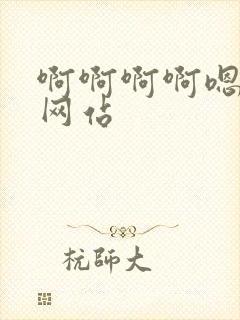 啊啊啊啊嗯
网佔
杭師大